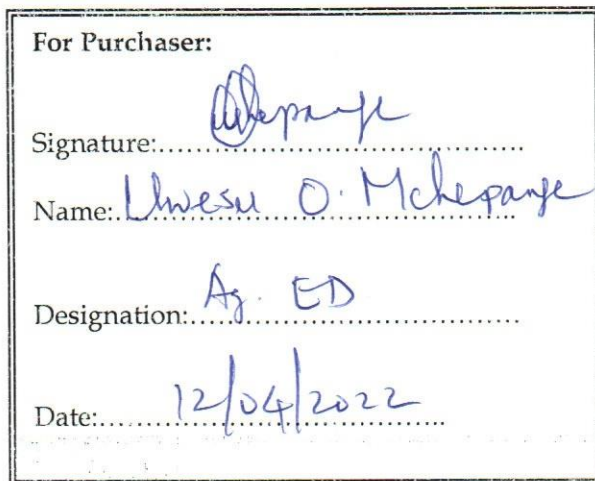 For Purchaser:
Signature:..... Mchepange
Name: Uwesu O. Mchepange
Designation: Ag. ED
Date: 12/04/2022